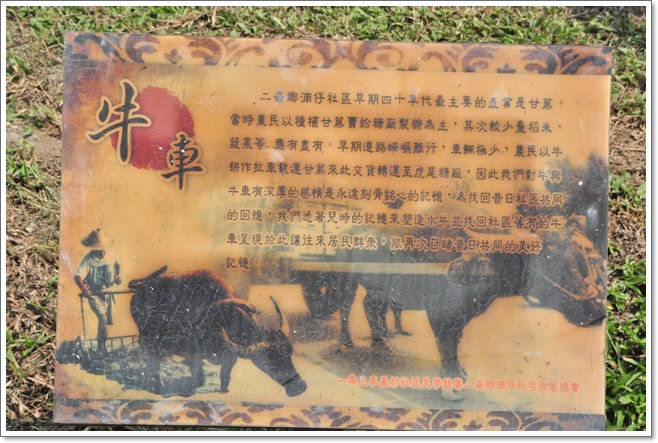 牛車
二崙鄉湳仔社區早期四十年代最主要的產業是甘蔗。
當時農民以種植甘蔗賣給糖廠製糖為主，其次較少量稻米、
蔬果等…應有盡有。早期道路崎嶇難行，車輛極少，農民以牛
耕作拉車載運甘蔗來此交貨轉運至虎尾糖廠，因此我們對牛與
牛車有深厚的感情是永遠刻骨銘心的記憶，為找回昔日社區共同
的回憶，我們憑著兒時的記憶來塑造水牛並找回社區舊有的牛
車呈現於此讓往來居民群眾，能再次目睹昔日共同的美好
記憶。
一零二年農村社區美學競賽二崙鄉湳仔社區發展協會